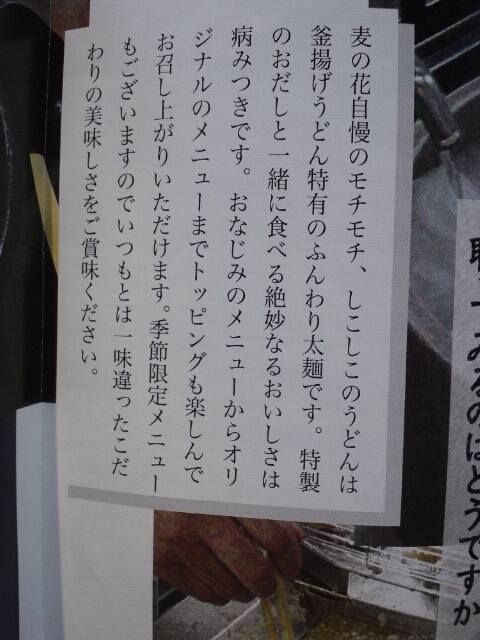 麦の花自慢のモチモチ、しこしこのうどんは
釜揚げうどん特有のふんわり太麺です。特製
のおだしと一緒に食べる絶妙なるおいしさは
病みつきです。おなじみのメニューからオリ
ジナルのメニューまでトッピングも楽しんで
お召し上がりいただけます。季節限定メニュー
もございますのでいつもとは一味違ったこだ
わりの美味しさをご賞味ください。
みるのはどうですか